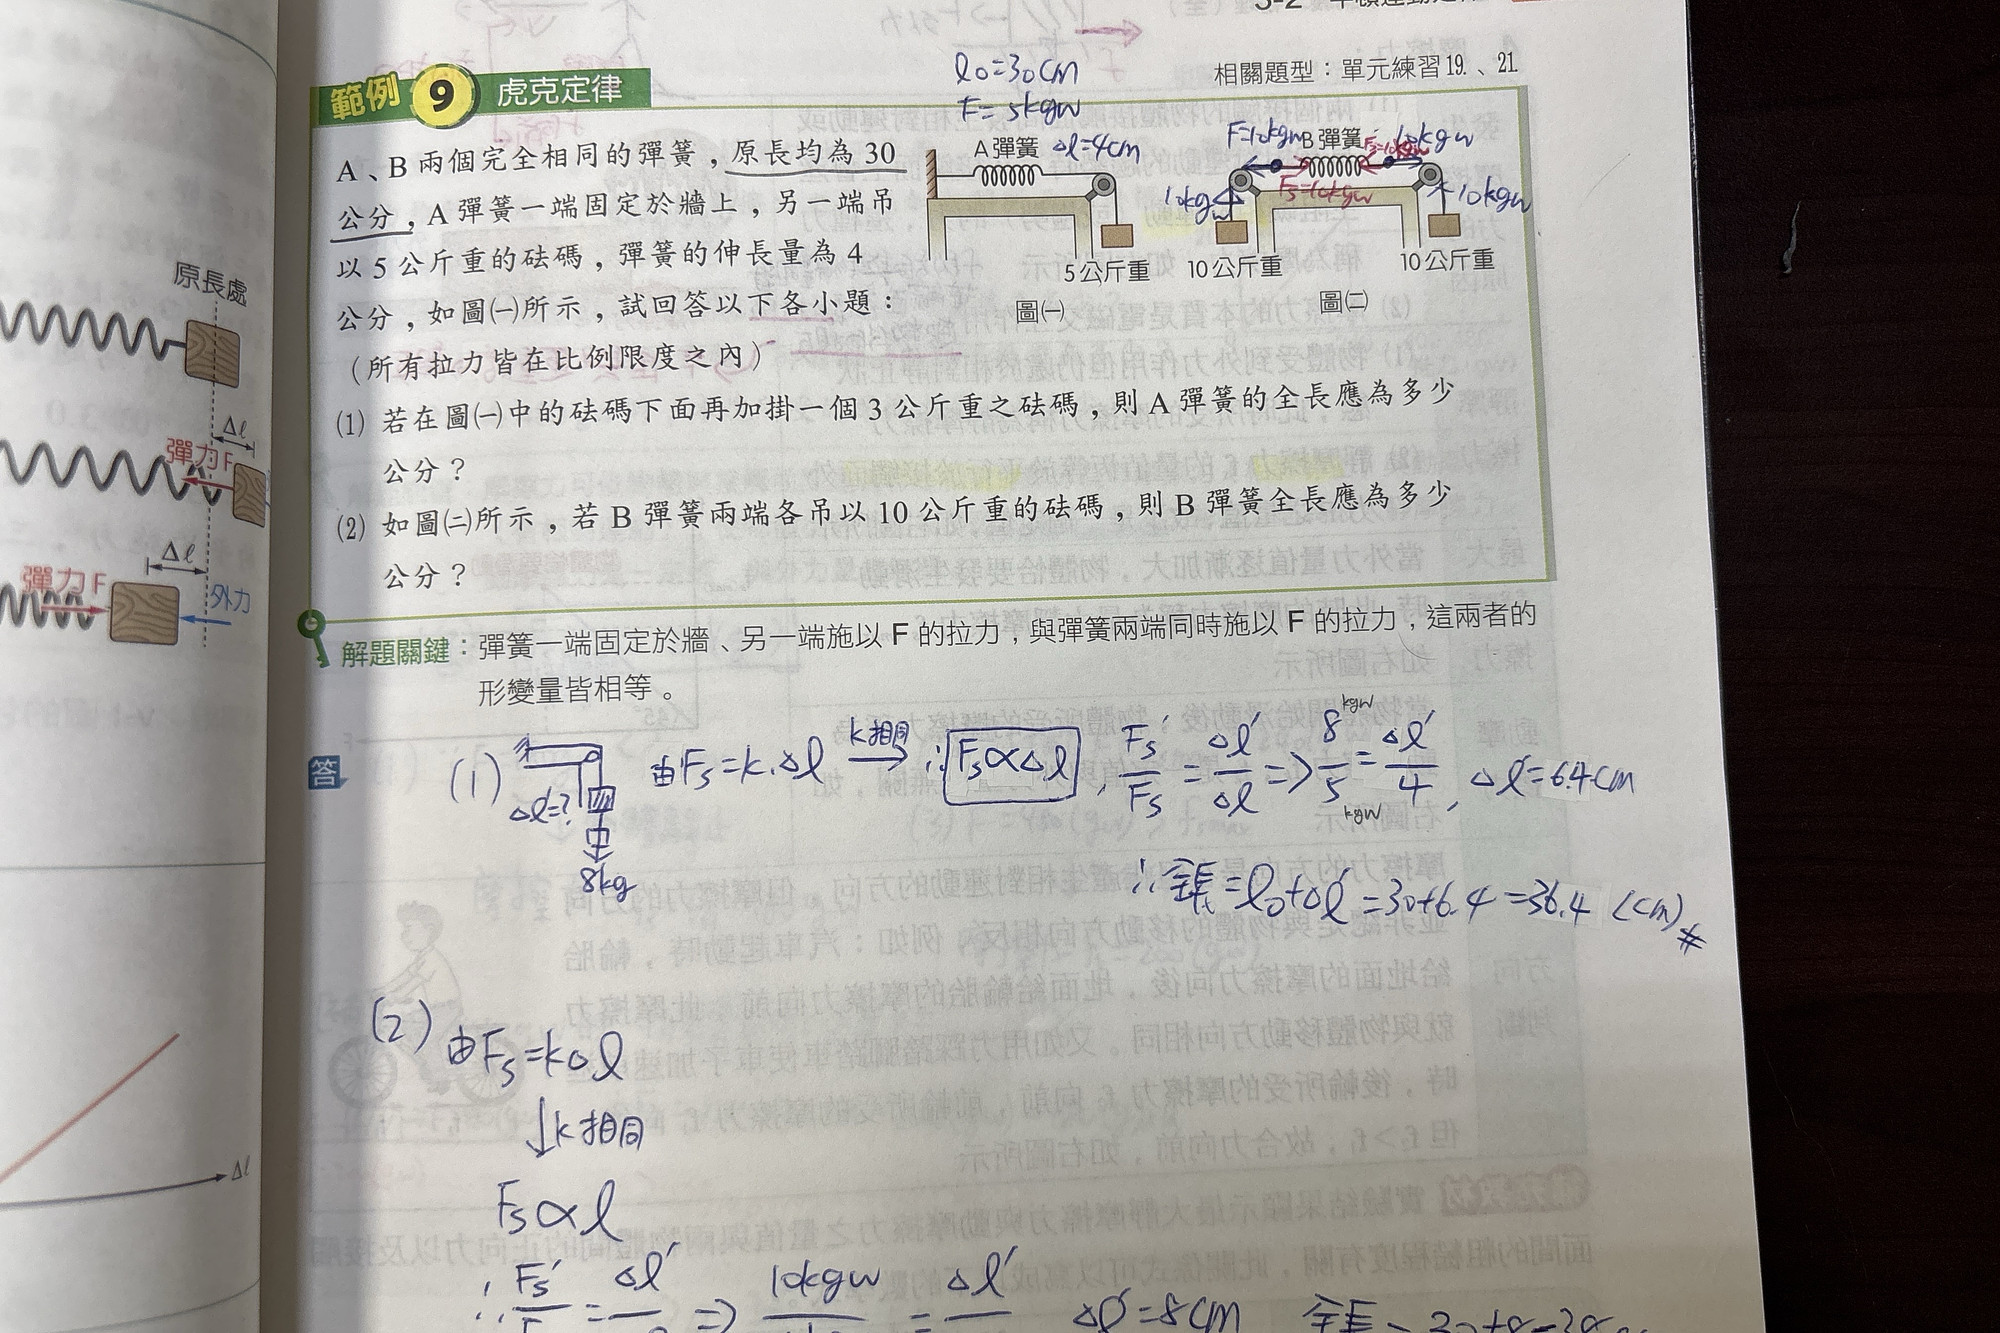 3-2
範例 9 虎克定律
相關題型：單元練習19.、21.
l0=30cm
F=5kgw
A、B 兩個完全相同的彈簧，原長均為 30
公分，A 彈簧一端固定於牆上，另一端吊
以 5 公斤重的砝碼，彈簧的伸長量為 4
公分，如圖㈠所示，試回答以下各小題：
（所有拉力皆在比例限度之內）
A 彈簧 Δl=4cm
5公斤重
圖㈠
F=10kgw B 彈簧 10kgw
Fs=10kgw
Fs=10kgw
10kgw
10kgw
10公斤重
10公斤重
圖㈡
⑴ 若在圖㈠中的砝碼下面再加掛一個 3 公斤重之砝碼，則 A 彈簧的全長應為多少
公分？
⑵ 如圖㈡所示，若 B 彈簧兩端各吊以 10 公斤重的砝碼，則 B 彈簧全長應為多少
公分？
解題關鍵：彈簧一端固定於牆、另一端施以 F 的拉力，與彈簧兩端同時施以 F 的拉力，這兩者的
形變量皆相等。
答
(1) Δl=? 8kg
由Fs=k.Δl k相同→ ∴Fs∝Δl, Fs'/Fs = Δl'/Δl => 8kgw/5kgw = Δl'/4, Δl'=6.4cm
∴全長=l0+Δl'=30+6.4=36.4 (cm)#
(2) 由Fs=kΔl
↓k相同
Fs∝l
10kgw
Δl'=8cm
原長處
Δl
彈力 F
Δl
彈力 F
外力
Δl